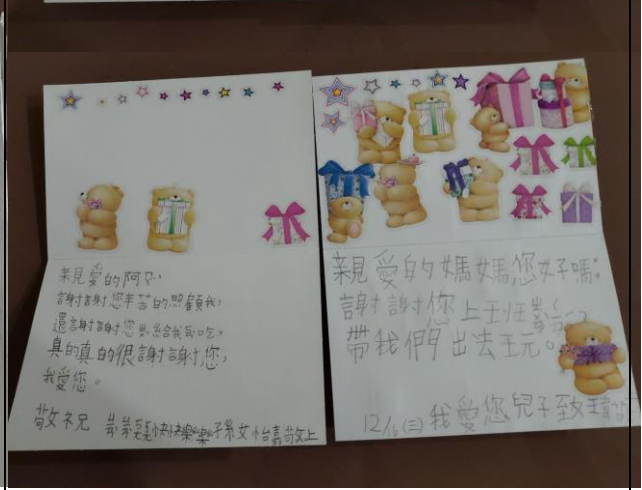 親愛的阿
謝謝您辛苦的照顧我，
還謝謝您煮給我 吃，
真的真的很謝謝您，
我愛您。
敬祝 快快樂樂孫女怡嘉敬上
親愛的媽媽您好嗎
謝謝您上班
帶我們出去玩。
12/16(三)我愛您兒子致瑋